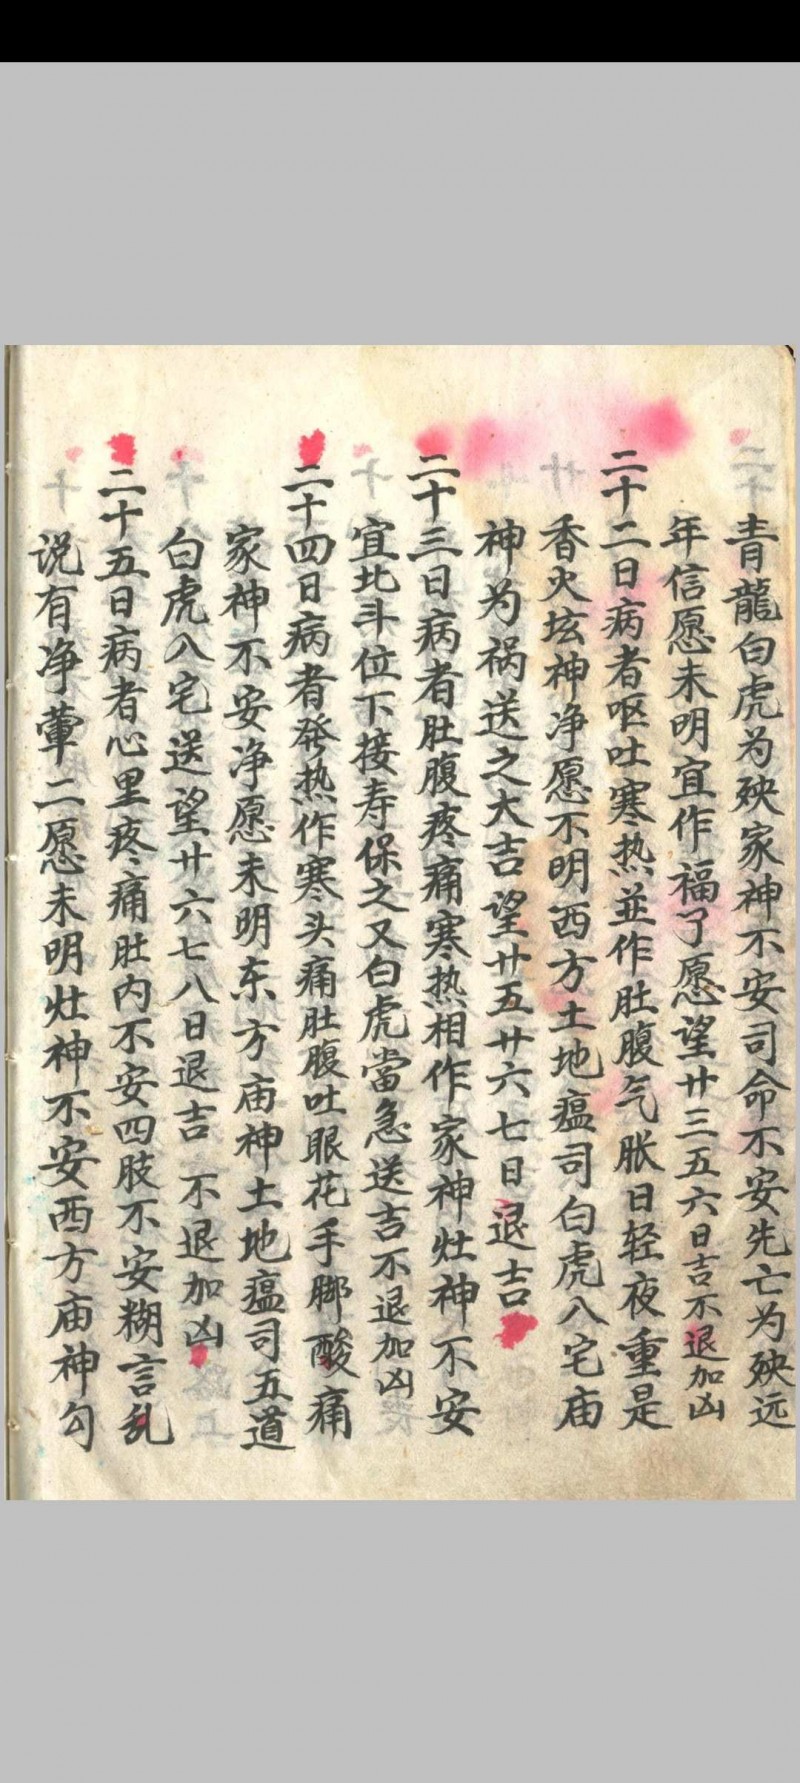 青龍白虎为殃家神不安司命不安先亡为殃远
年信愿未明宜作福了愿望廿三五六日吉不退加凶
二十二日病者呕吐寒热並作肚腹气胀日轻夜重是
香火坛神净愿不明西方土地瘟司白虎八宅庙
神为祸送之大吉望廿五廿六七日退吉
二十三日病者肚腹疼痛寒热相作家神灶神不安
宜北斗位下接寿保之又白虎當急送吉不退加凶
二十四日病者發热作寒头痛肚腹吐眼花手脚酸痛
家神不安净愿未明东方庙神土地瘟司五道
白虎八宅送望廿六七八日退吉 不退加凶
二十五日病者心里疼痛肚内不安四肢不安糊言乱
说有净葷二愿未明灶神不安西方庙神勾